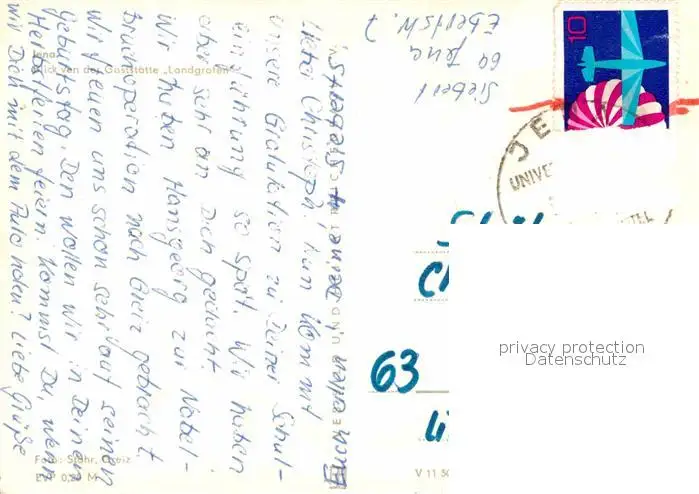 Lieber Christoph! Nun kommt
unsere Gratulation zu Deiner Schul-
einführung so spät. Wir haben
aber sehr an Dich gedacht.
Wir haben Hansgeorg zur Nabel-
bruchoperation nach Greiz gebracht.
Wir freuen uns schon sehr auf seinen
Geburtstag. Den wollen wir in Deinen
Herbstferien feiern. Kommst Du, wenn
wir Dich mit dem Auto holen? Liebe Grüße
Jena
Blick von der Gaststätte „Landgrafen"
Foto: Stahr, Greiz
EVP 0,20 M
V 11 50
Siebert
69 Jena
10
JE
UNIVE
63
privacy protection
Datenschutz